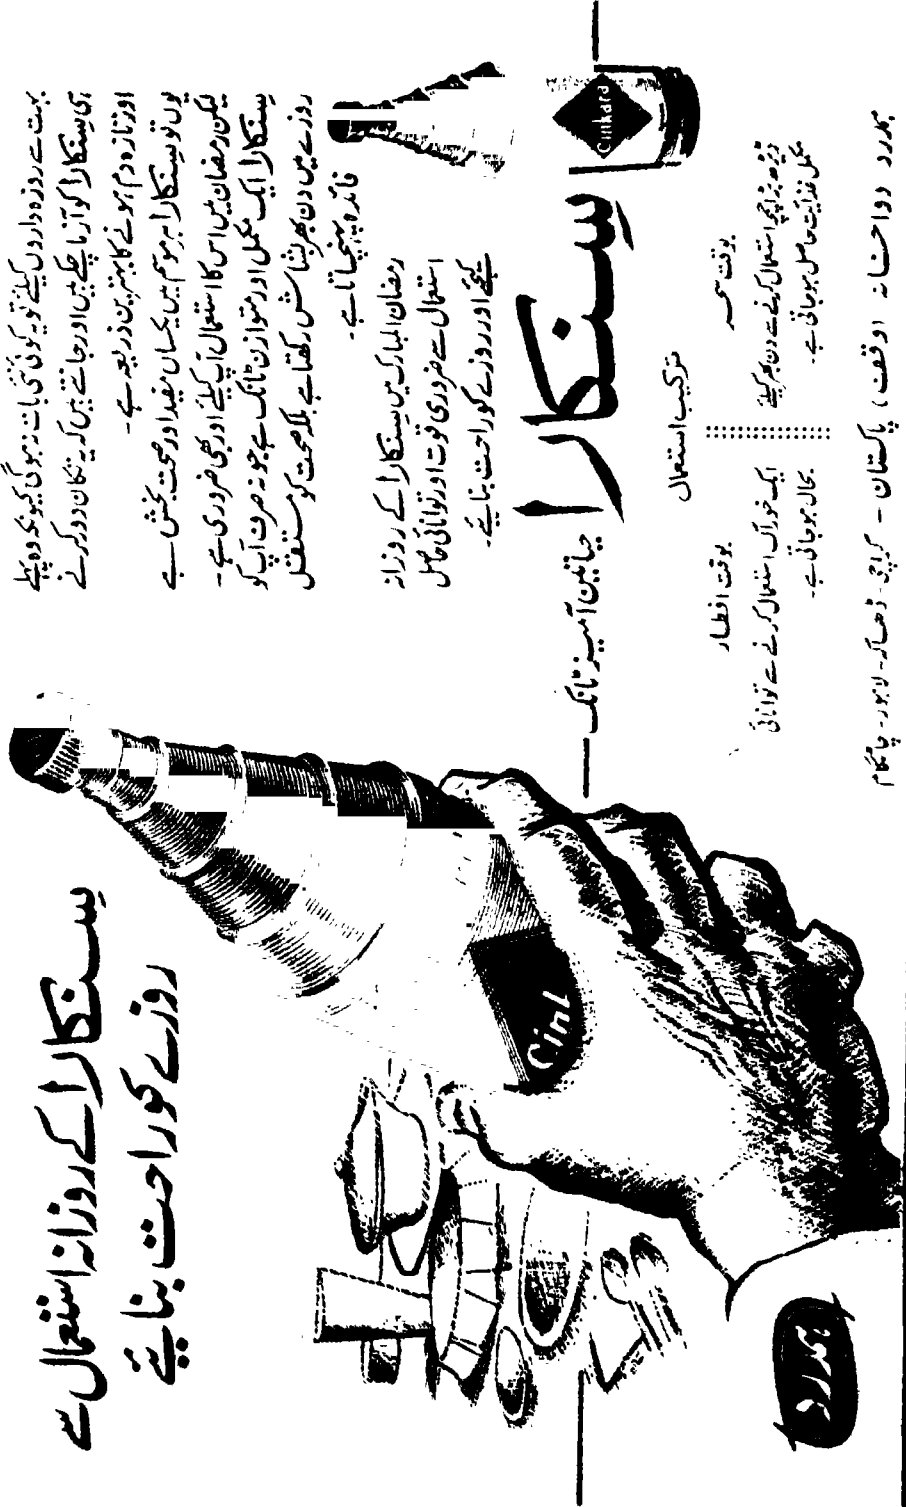 سنکارا کے روزانہ استعمال سے
روزے کو راحت بنائیے
بہت سے روزہ داروں کیلئے تو یہ کوئی نئی بات نہ ہوگی کیونکہ وہ پہلے
ہی سنکارا کو آزما چکے ہیں اور جانتے ہیں کہ یہ تکان دور کرنے
اور تازہ دم ہونے کا بہترین ذریعہ ہے۔
یوں تو سنکارا ہر موسم میں یکساں مفید اور صحت بخش ہے
لیکن رمضان میں اس کا استعمال آپ کیلئے اور بھی ضروری ہے۔
سنکارا ایک مکمل اور متوازن ٹانک ہے جو نہ صرف آپ کو
روزے میں دن بھر بشاش رکھتا ہے بلکہ صحت کو مستقل
فائدہ پہنچاتا ہے۔
رمضان المبارک میں سنکارا کے روزانہ
استعمال سے ضروری قوت اور توانائی حاصل
کیجئے اور روزے کو راحت بنائیے۔
Cinkara
Cinl
سنکارا
حیاتین آمیز ٹانک
ترکیب استعمال
بوقت سحر
ڈیڑھ بڑا چمچہ استعمال کرنے سے دن بھر کیلئے
مکمل غذائیت حاصل ہوجاتی ہے۔
بوقت افطار
ایک خوراک استعمال کرنے سے توانائی
بحال ہوجاتی ہے۔
ہمدرد دواخانہ (وقف) پاکستان - کراچی - ڈھاکہ - لاہور - چاٹگام
ہمدرد